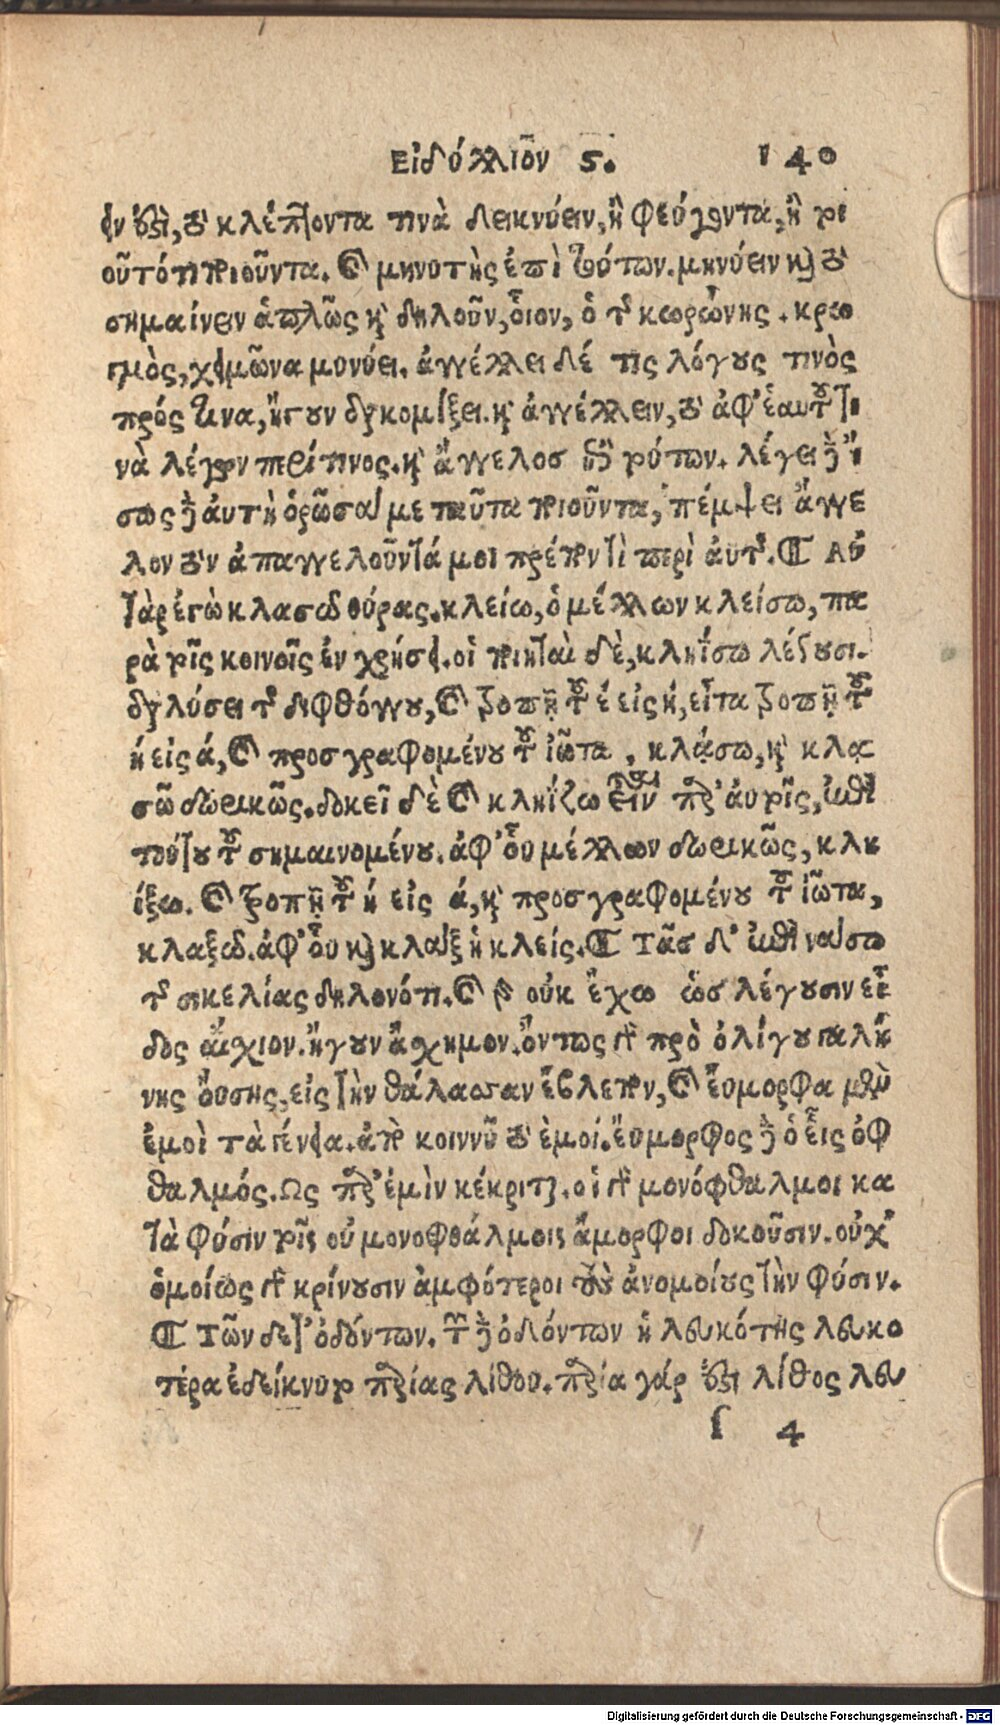 Εἰδύλλιον ς. 140
ειν ἐστὶ, τὸ κλέπτοντα τινὰ δεικνύειν, ἢ φεύγοντα, ἢ τοι
οῦτό τι ποιοῦντα. καὶ μηνυτὴς ἐπὶ τούτων. μηνύειν καὶ τὸ
σημαίνειν ἁπλῶς καὶ δηλοῦν, οἷον, ὁ τῆς κωρώνης. κρω
γμὸς, χειμῶνα μυνύει. ἀγγέλλει δέ τις λόγους τινὸς
πρός τινα, ἤγουν διακομίζει. καὶ ἀγγέλλειν, τὸ ἀφ' ἑαυτοῦ τι
νὰ λέγειν περί τινος. καὶ ἄγγελοσ ἐπὶ τούτων. λέγει γὰρ ἴ
σως γὰρ ἀυτὴ ὁρῶσά με ταῦτα ποιοῦντα, πέμψει ἄγγε
λον τὸν ἀπαγγελοῦντά μοι πρέπον τὶ περὶ ἀυτῆς. Αὐ
τὰρ ἐγὼ κλασῶ θύρας. κλείω, ὁ μέλλων κλείσω, πα
ρὰ τοῖς κοινοῖς ἐν χρήσει. οἱ ποιηταὶ δὲ, κληΐσω λέγουσι.
διαλύσει τῆς διφθόγγου, καὶ τροπῇ τοῦ έ εἰς ή, εἶτα τροπῇ τοῦ
ή εἰς ά, καὶ προσγραφομένου τοῦ ἰῶτα, κλᾴσω, καὶ κλᾳ
σῶ δωρικῶς. δοκεῖ δὲ καὶ κληΐζω εἶναι παρ' ἀυτοῖς, ἐπὶ
τούτου τοῦ σημαινομένου. ἀφ' οὗ μέλλων δωρικῶς, κλη
ίξω. καὶ τροπῇ τοῦ ή εἰς ά, καὶ προσγραφομένου τοῦ ἰῶτα,
κλαξῶ. ἀφ' οὗ καὶ κλαὶξ ἡ κλείς. Τᾶσ δ' ἐπὶ νάσω
τῆς σικελίας δηλονότι. καὶ γὰρ οὐκ ἔχω ὡσ λέγουσιν εἶ
δος αἴχιον. ἤγουν ἄχημον. ὄντως γὰρ πρὸ ὀλίγου γαλή
νης ὄυσης, εἰς τὴν θάλασσαν ἔβλεπον, καὶ ἔυμορφα μὲν
ἐμοὶ τὰ γένεια. ἀπὸ κοινοῦ τὸ ἐμοί. ἔυμορφος γὰρ ὁ εἷς ὀφ
θαλμός. Ως παρ' ἐμὶν κέκριται. οἱ γὰρ μονόφθαλμοι κα
τὰ φύσιν τοῖς οὐ μονοφθάλμοις ἄμορφοι δοκοῦσιν. οὐχ
ὁμοίως γὰρ κρίνουσιν ἀμφότεροι τοὺς ἀνομοίους τὴν φύσιν.
Τῶν δέ τ' ὀδόντων. τῶν γὰρ ὀδόντων ἡ λευκότης λευκο
τέρα ἐδείκνυτο παρίας λίθου. παρία γάρ ἐστι λίθος λευ
ſ 4
Digitalisierung gefördert durch die Deutsche Forschungsgemeinschaft - DFG